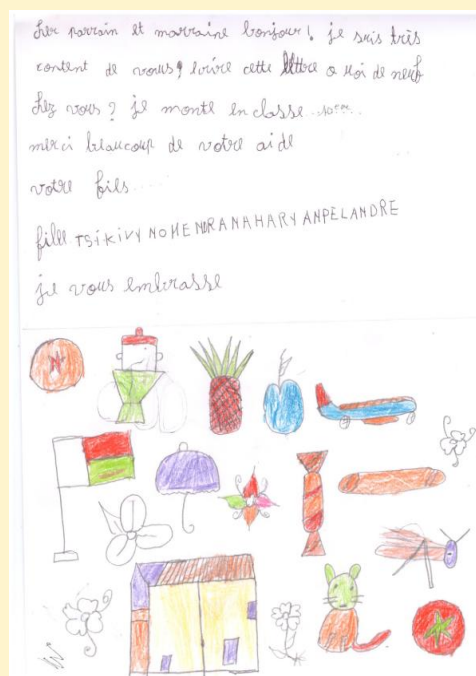 cher parrain et marraine bonjour! je suis très
content de vous écrire cette lettre a uoi de neuf
chez vous? je monte en classe...10ème...
merci beaucoup de votre aide
votre fils.....
filleTSiKiVY NOMENDRANAHARY ANPELANDRE
je vous embrasse